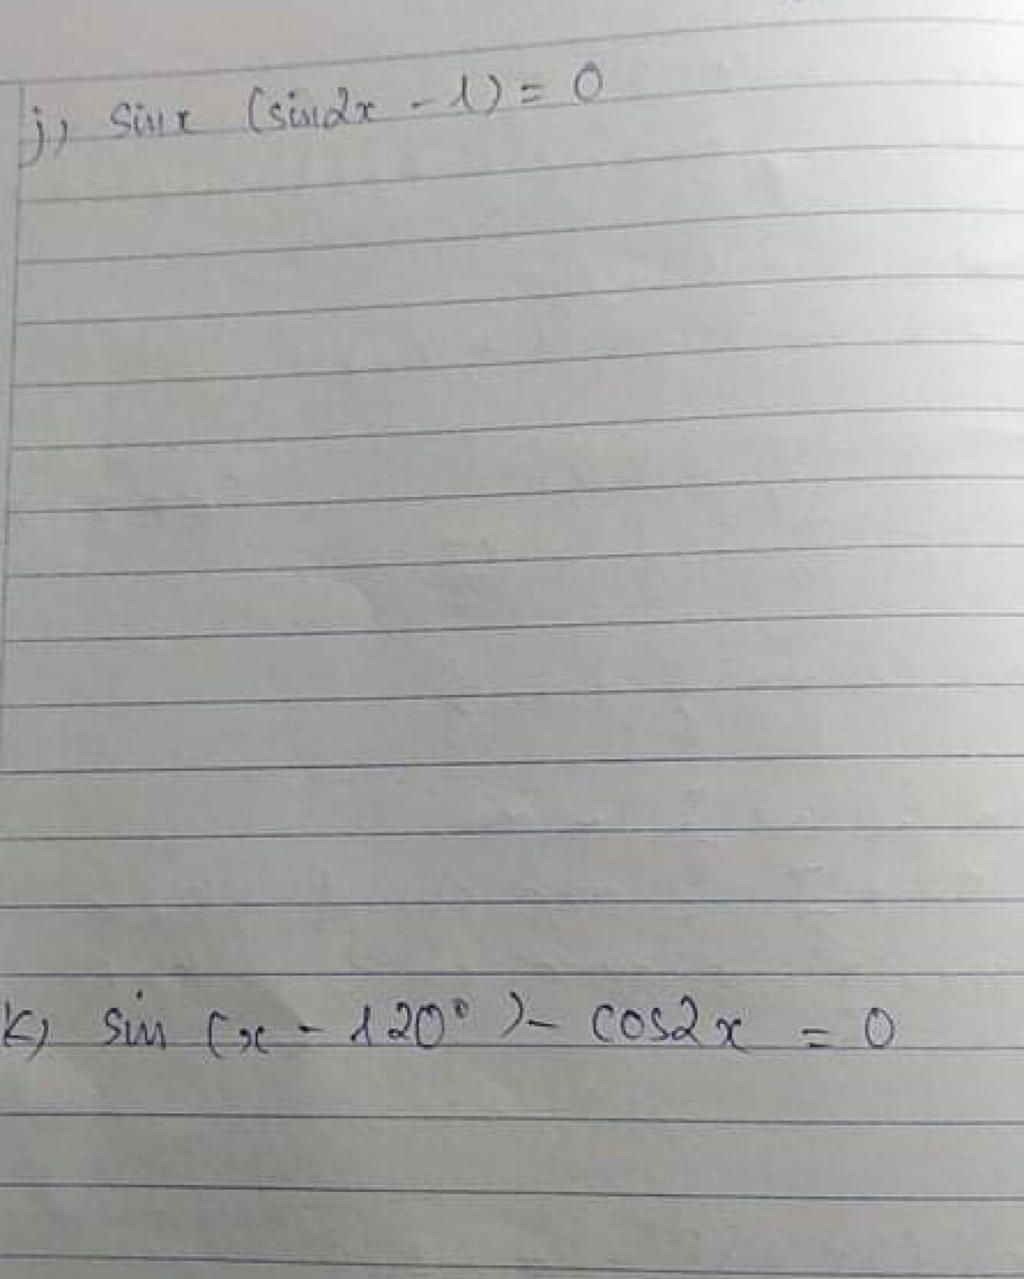 j) sinx (sin2x - 1) = 0
k) sin (x - 120°) - cos2x = 0